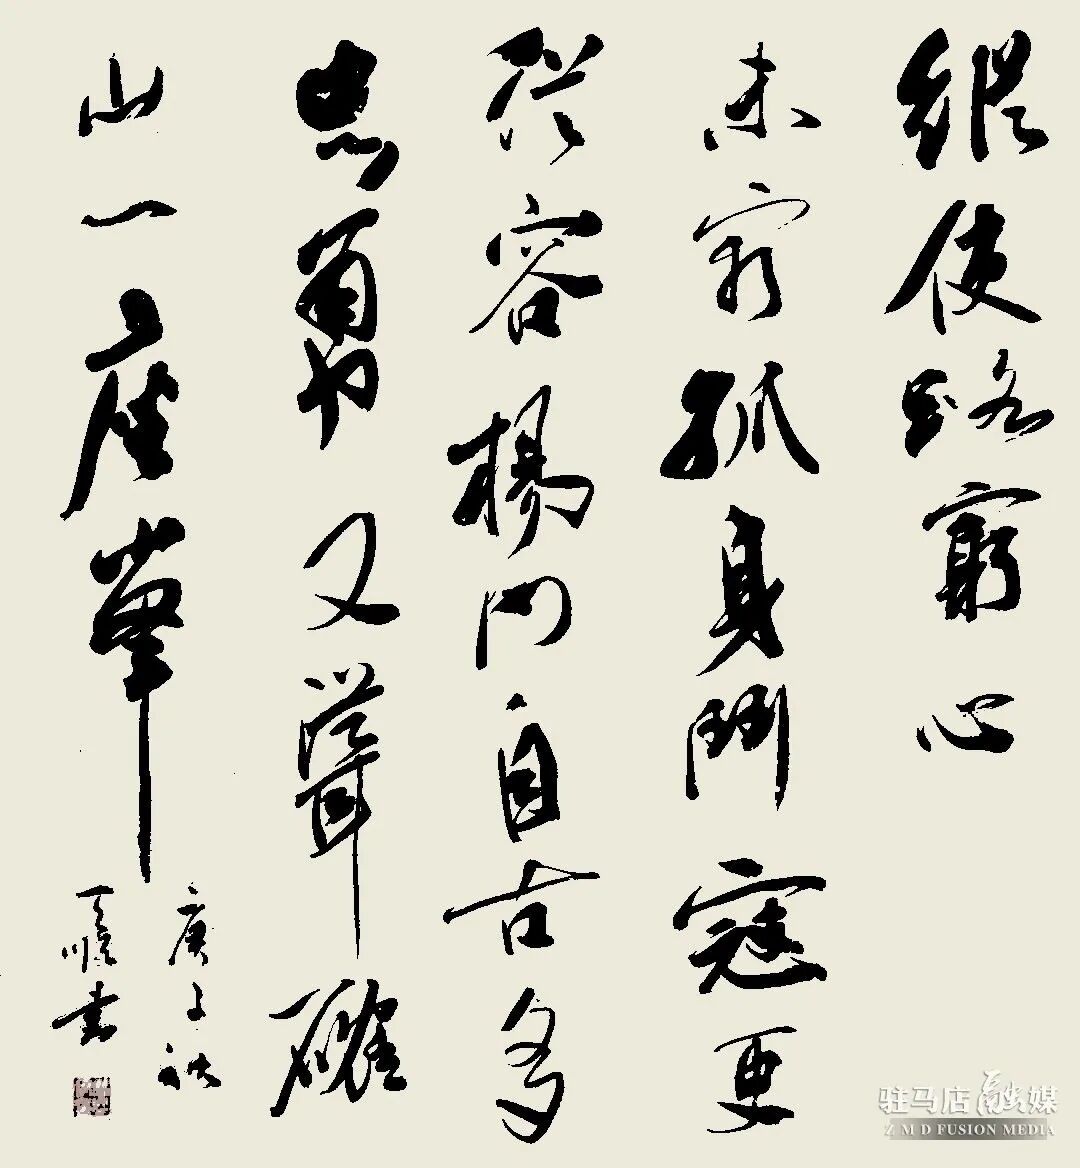 縱使路窮心
未窮孤身鬥寇更
從容楊門自古多
忠勇又聳確
山一座峯
庚子秋
順書
驻马店融媒
Z M D FUSION MEDIA